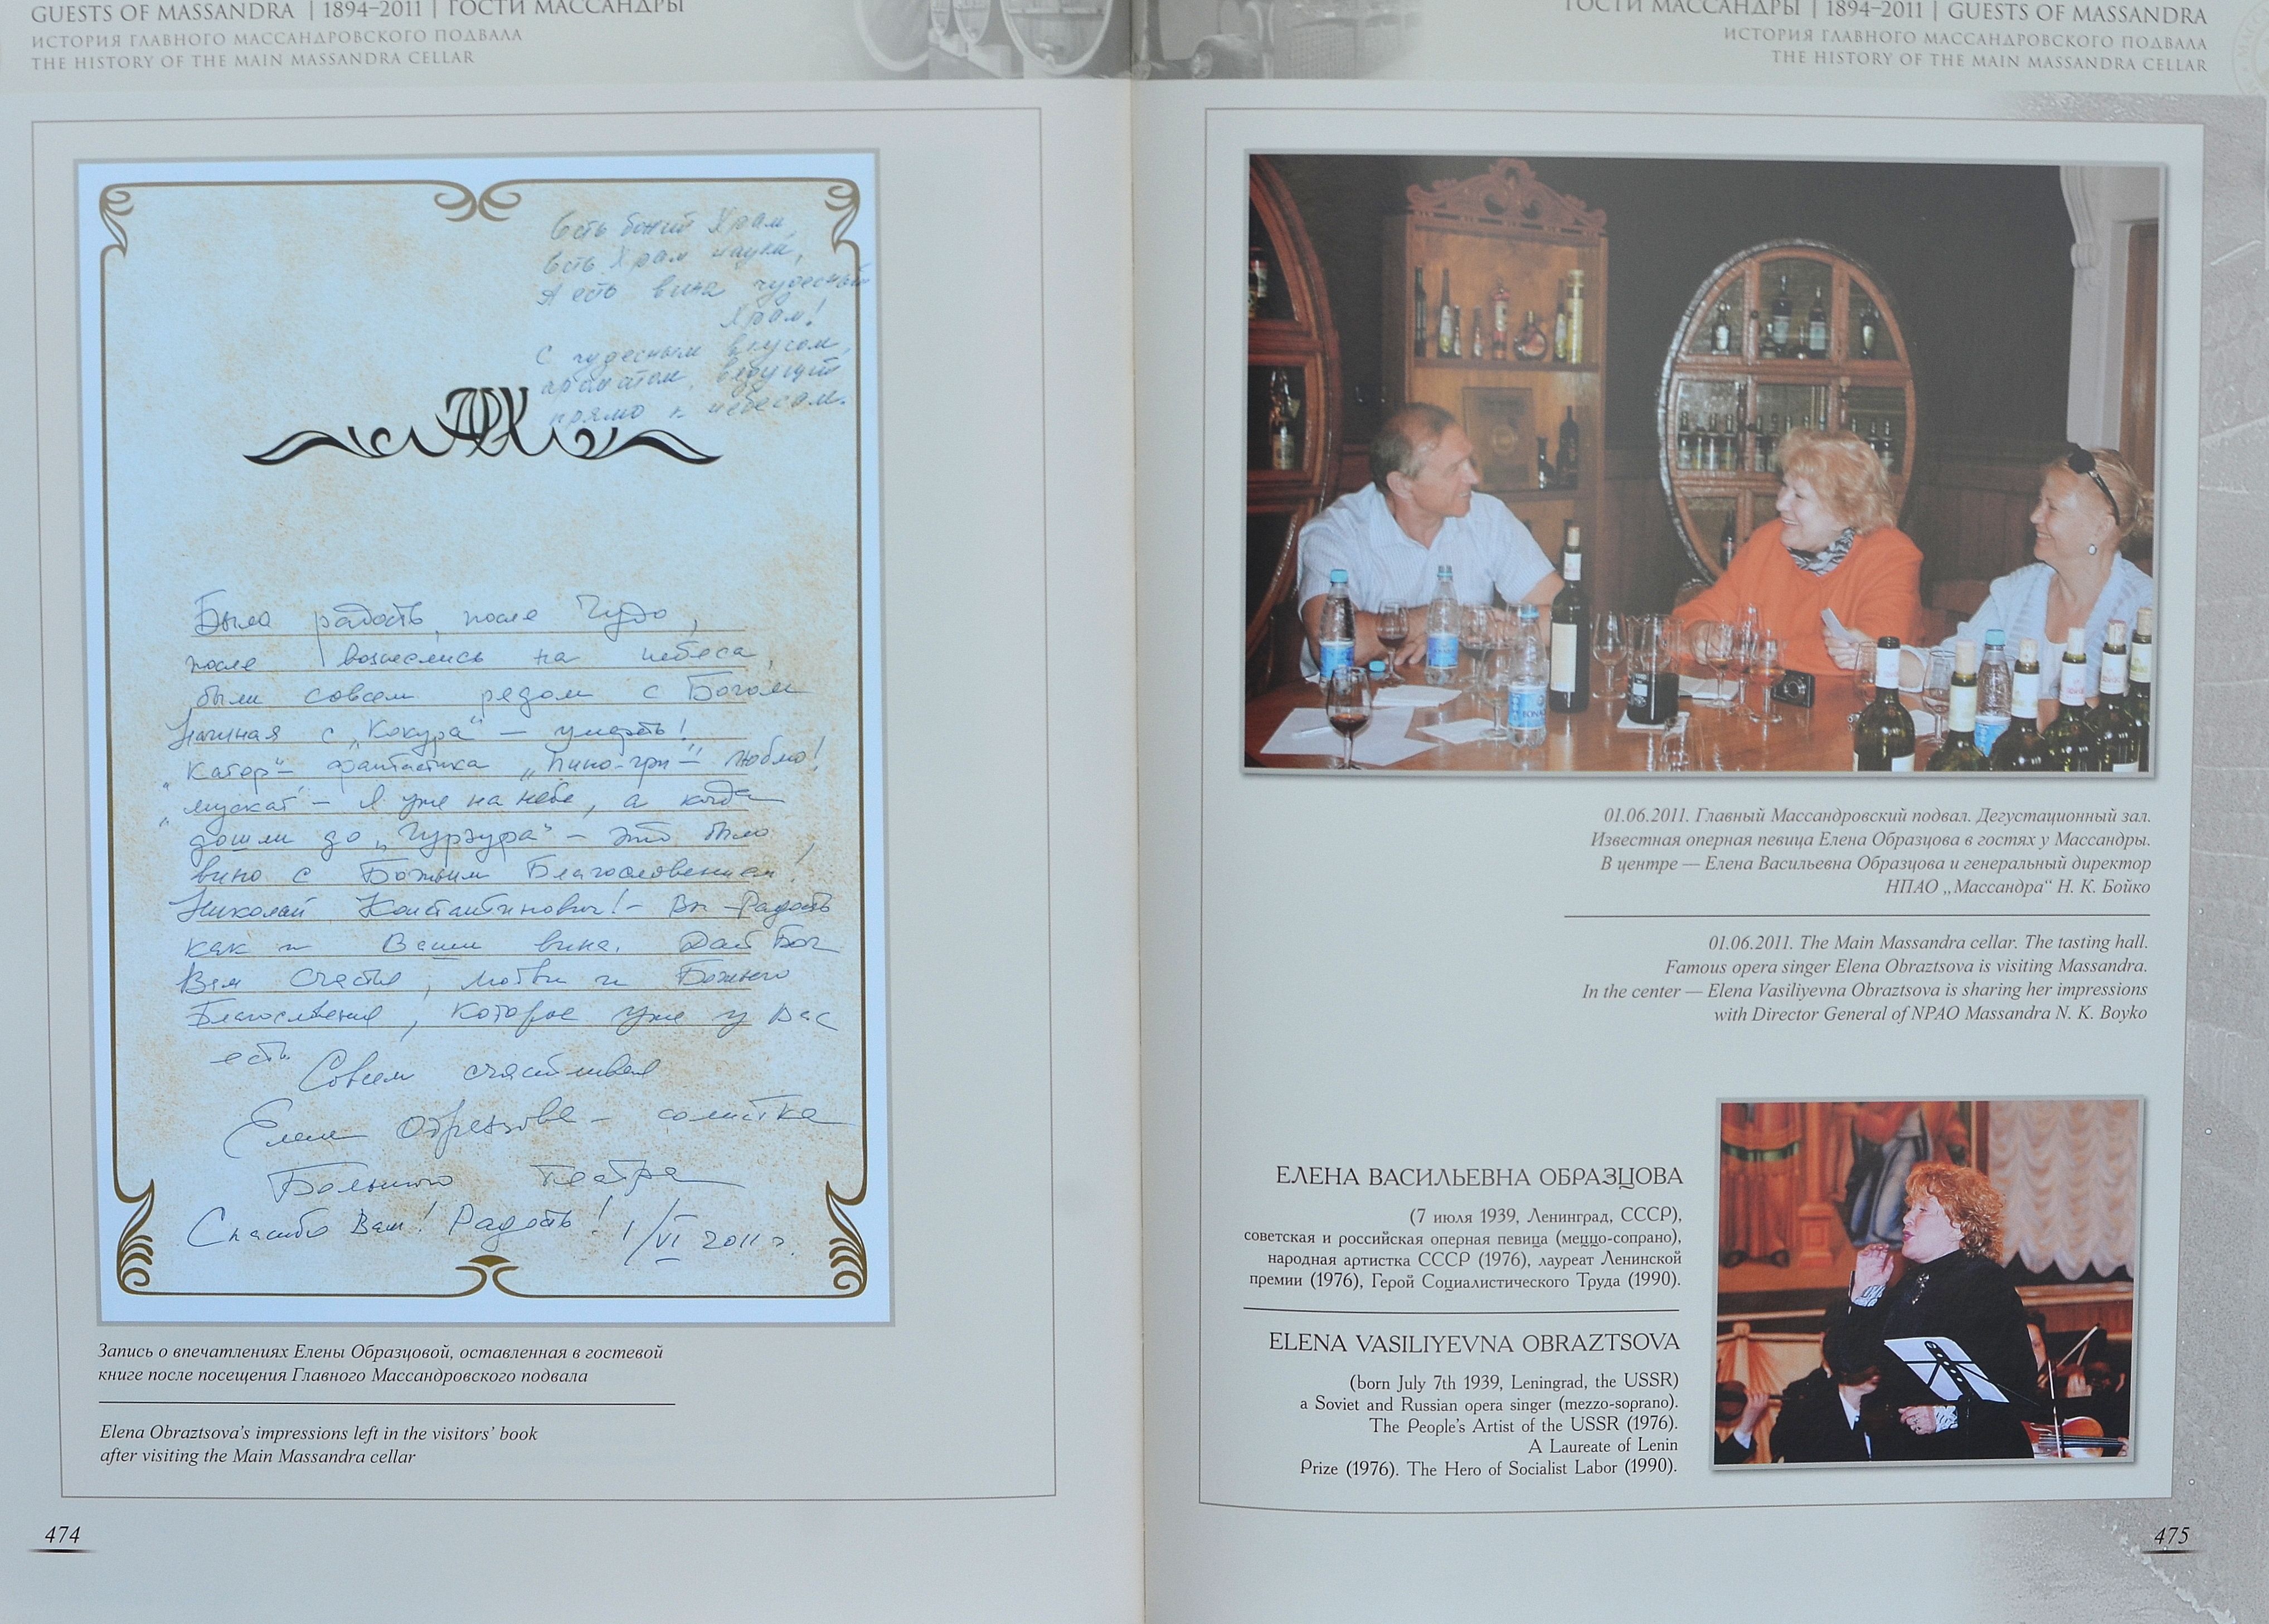 GUESTS OF MASSANDRA | 1894–2011 | ГОСТИ МАССАНДРЫ
ИСТОРИЯ ГЛАВНОГО МАССАНДРОВСКОГО ПОДВАЛА
THE HISTORY OF THE MAIN MASSANDRA CELLAR
Есть божий Храм,
Есть Храм науки,
А есть вина чудесный
Храм!
С чудесным вкусом,
ароматом, ведущий
прямо к небесам.
Была радость, после Чудо,
после вознеслись на небеса,
были совсем рядом с Богом
Начиная с „Кокура“ – умереть!
"Кагор" – фантастика „Пино-гри“ – люблю!
"мускат" – Я уже на небе, а когда
дошли до „Гурзуфа“ – это было
вино с Божьим Благословением!
Николай Константинович! – Вы – Радость
как и Ваши вина. Дай Бог
Вам счастья, любви и Божьего
Благословения, которое уже у Вас
есть
Совсем счастливая
Елена Образцова – солистка
Большого театра
Спасибо Вам! Радость! 1/VI 2011 г.
Запись о впечатлениях Елены Образцовой, оставленная в гостевой
книге после посещения Главного Массандровского подвала
Elena Obraztsova's impressions left in the visitors' book
after visiting the Main Massandra cellar
474
ГОСТИ МАССАНДРЫ | 1894–2011 | GUESTS OF MASSANDRA
ИСТОРИЯ ГЛАВНОГО МАССАНДРОВСКОГО ПОДВАЛА
THE HISTORY OF THE MAIN MASSANDRA CELLAR
01.06.2011. Главный Массандровский подвал. Дегустационный зал.
Известная оперная певица Елена Образцова в гостях у Массандры.
В центре — Елена Васильевна Образцова и генеральный директор
НПАО „Массандра“ Н. К. Бойко
01.06.2011. The Main Massandra cellar. The tasting hall.
Famous opera singer Elena Obraztsova is visiting Massandra.
In the center — Elena Vasiliyevna Obraztsova is sharing her impressions
with Director General of NPAO Massandra N. K. Boyko
ЕЛЕНА ВАСИЛЬЕВНА ОБРАЗЦОВА
(7 июля 1939, Ленинград, СССР),
советская и российская оперная певица (меццо-сопрано),
народная артистка СССР (1976), лауреат Ленинской
премии (1976), Герой Социалистического Труда (1990).
ELENA VASILIYEVNA OBRAZTSOVA
(born July 7th 1939, Leningrad, the USSR)
a Soviet and Russian opera singer (mezzo-soprano).
The People's Artist of the USSR (1976).
A Laureate of Lenin
Prize (1976). The Hero of Socialist Labor (1990).
475